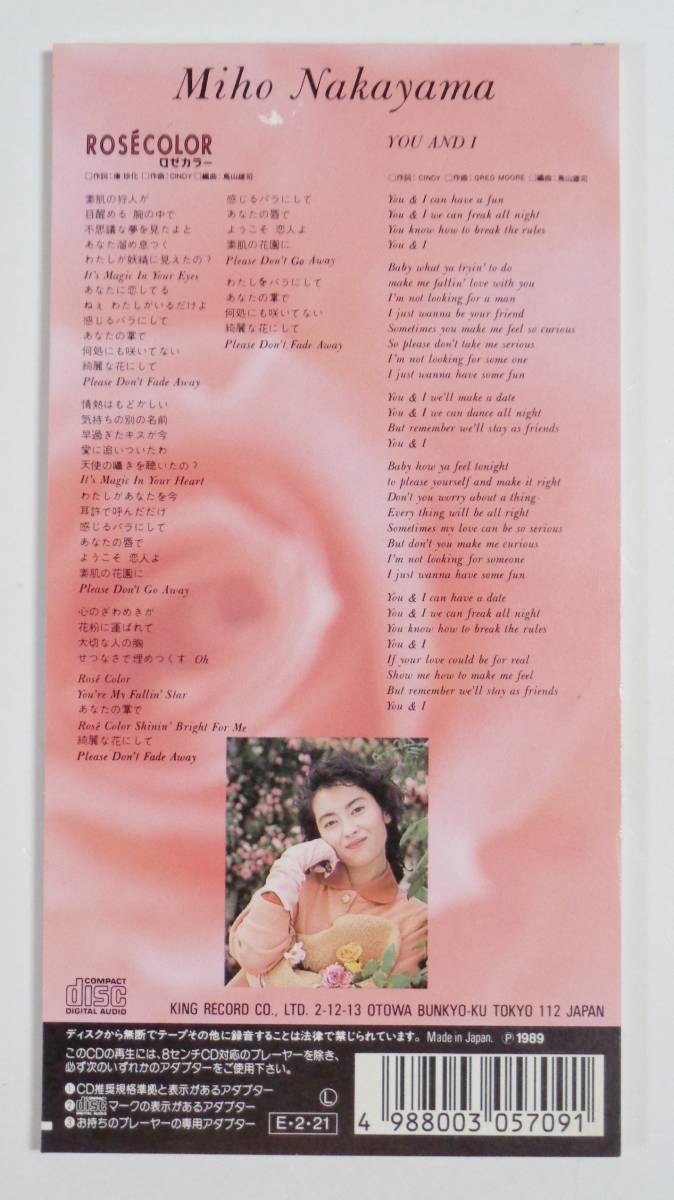 Miho Nakayama
ROSÉCOLOR
ロゼカラー
□作詞：康 珍化 □作曲：CINDY □編曲：鳥山雄司
素肌の狩人が
目醒める 腕の中で
不思議な夢を見たよと
あなた溜め息つく
わたしが妖精に見えたの？
It's Magic In Your Eyes
あなたに恋してる
ねぇ わたしがいるだけよ
感じるバラにして
あなたの掌で
何処にも咲いてない
綺麗な花にして
Please Don't Fade Away
情熱はもどかしい
気持ちの別の名前
早過ぎたキスが今
愛に追いついたわ
天使の囁きを聴いたの？
It's Magic In Your Heart
わたしがあなたを今
耳許で呼んだだけ
感じるバラにして
あなたの唇で
ようこそ 恋人よ
素肌の花園に
Please Don't Go Away
心のざわめきが
花粉に運ばれて
大切な人の胸
せつなさで埋めつくす Oh
Rosé Color
You're My Fallin' Star
あなたの掌で
Rosé Color Shinin' Bright For Me
綺麗な花にして
Please Don't Fade Away
感じるバラにして
あなたの唇で
ようこそ 恋人よ
素肌の花園に
Please Don't Go Away
わたしをバラにして
あなたの掌で
何処にも咲いてない
綺麗な花にして
Please Don't Fade Away
YOU AND I
□作詞：CINDY □作曲：GREG MOORE □編曲：鳥山雄司
You & I can have a fun
You & I we can freak all night
You know how to break the rules
You & I
Baby what ya tryin' to do
make me fallin' love with you
I'm not looking for a man
I just wanna be your friend
Sometimes you make me feel so curious
So please don't take me serious
I'm not looking for some one
I just wanna have some fun
You & I we'll make a date
You & I we can dance all night
But remember we'll stay as friends
You & I
Baby how ya feel tonight
to please yourself and make it right
Don't you worry about a thing
Every thing will be all right
Sometimes my love can be so serious
But don't you make me curious
I'm not looking for someone
I just wanna have some fun
You & I can have a date
You & I we can freak all night
You know how to break the rules
You & I
If your love could be for real
Show me how to make me feel
But remember we'll stay as friends
You & I
COMPACT
disc
DIGITAL AUDIO
KING RECORD CO., LTD. 2-12-13 OTOWA BUNKYO-KU TOKYO 112 JAPAN
ディスクから無断でテープその他に録音することは法律で禁じられています。 Made in Japan. Ⓟ 1989
このCDの再生には、8センチCD対応のプレーヤーを除き、
必ず次のいずれかのアダプターをご使用下さい。
①CD推奨規格準拠と表示があるアダプター
②disc DIGITAL AUDIOマークの表示があるアダプター
③お持ちのプレーヤーの専用アダプター
Ⓛ
E・2・21
4 988003 057091